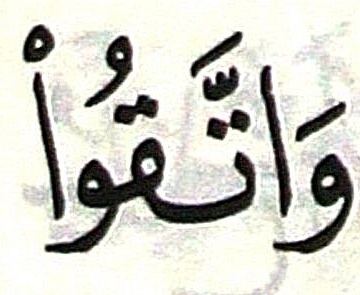 وَاتَّقُواْ